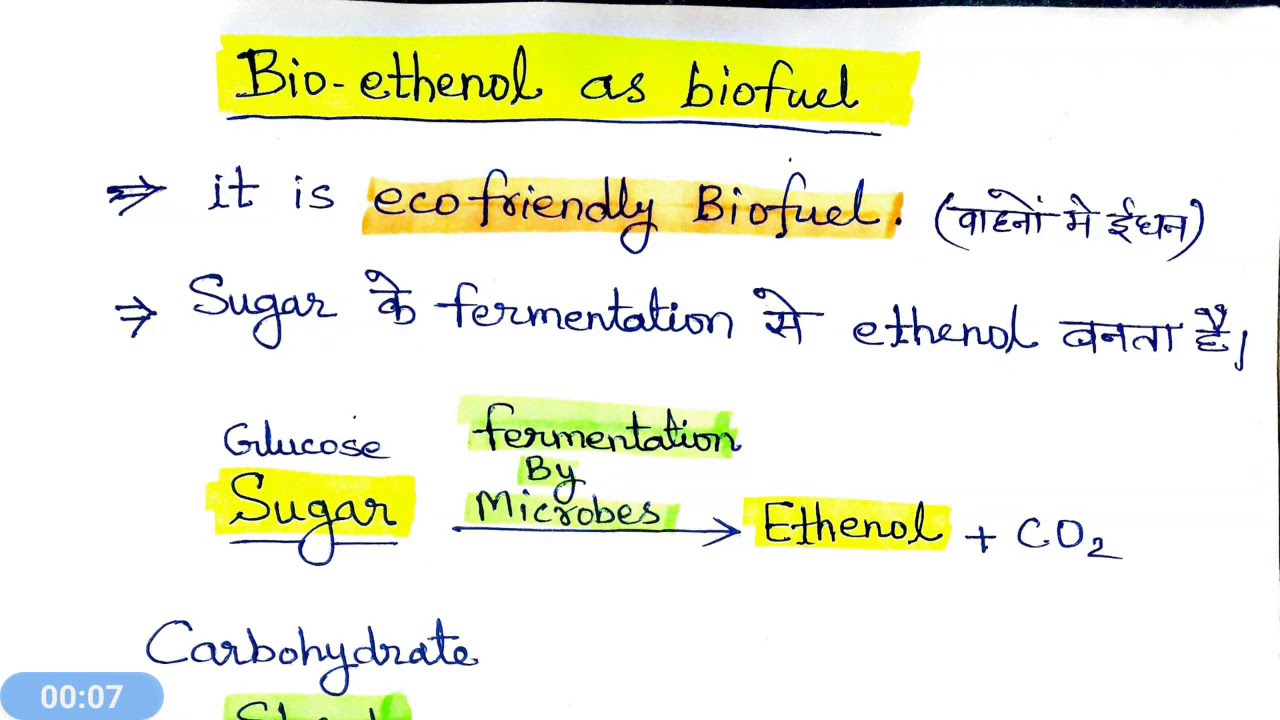 Bio-ethenol as biofuel
⇒ it is ecofriendly Biofuel. (वाहनों मे ईधन)
⇒ Sugar के fermentation से ethenol बनता है।
Glucose fermentation
By
Sugar Microbes → Ethenol + CO2
Carbohydrate
00:07